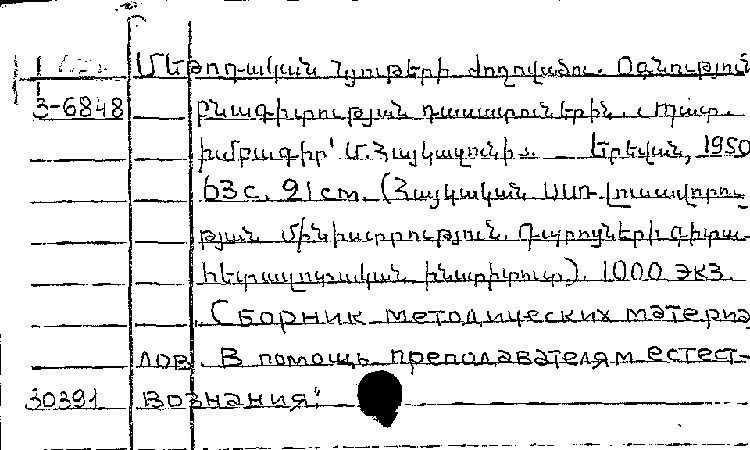 Մեթոդական նյութերի ժողովածու. Օգնություն
3-6848 բնագիտության դասատուներին. Պատ.
խմբագիր՝ Մ. Հայկազունի. — Երեվան, 1950
63 с. 21 cm. (Հայկական ՍՍՌ լուսավորու-
թյան մինիստրություն. Դպրոցների գիտա-
հետազոտական ինստիտուտ). 1000 экз.
Сборник методических материа
лов. В помощь преподавателям естест-
30391 вознания."